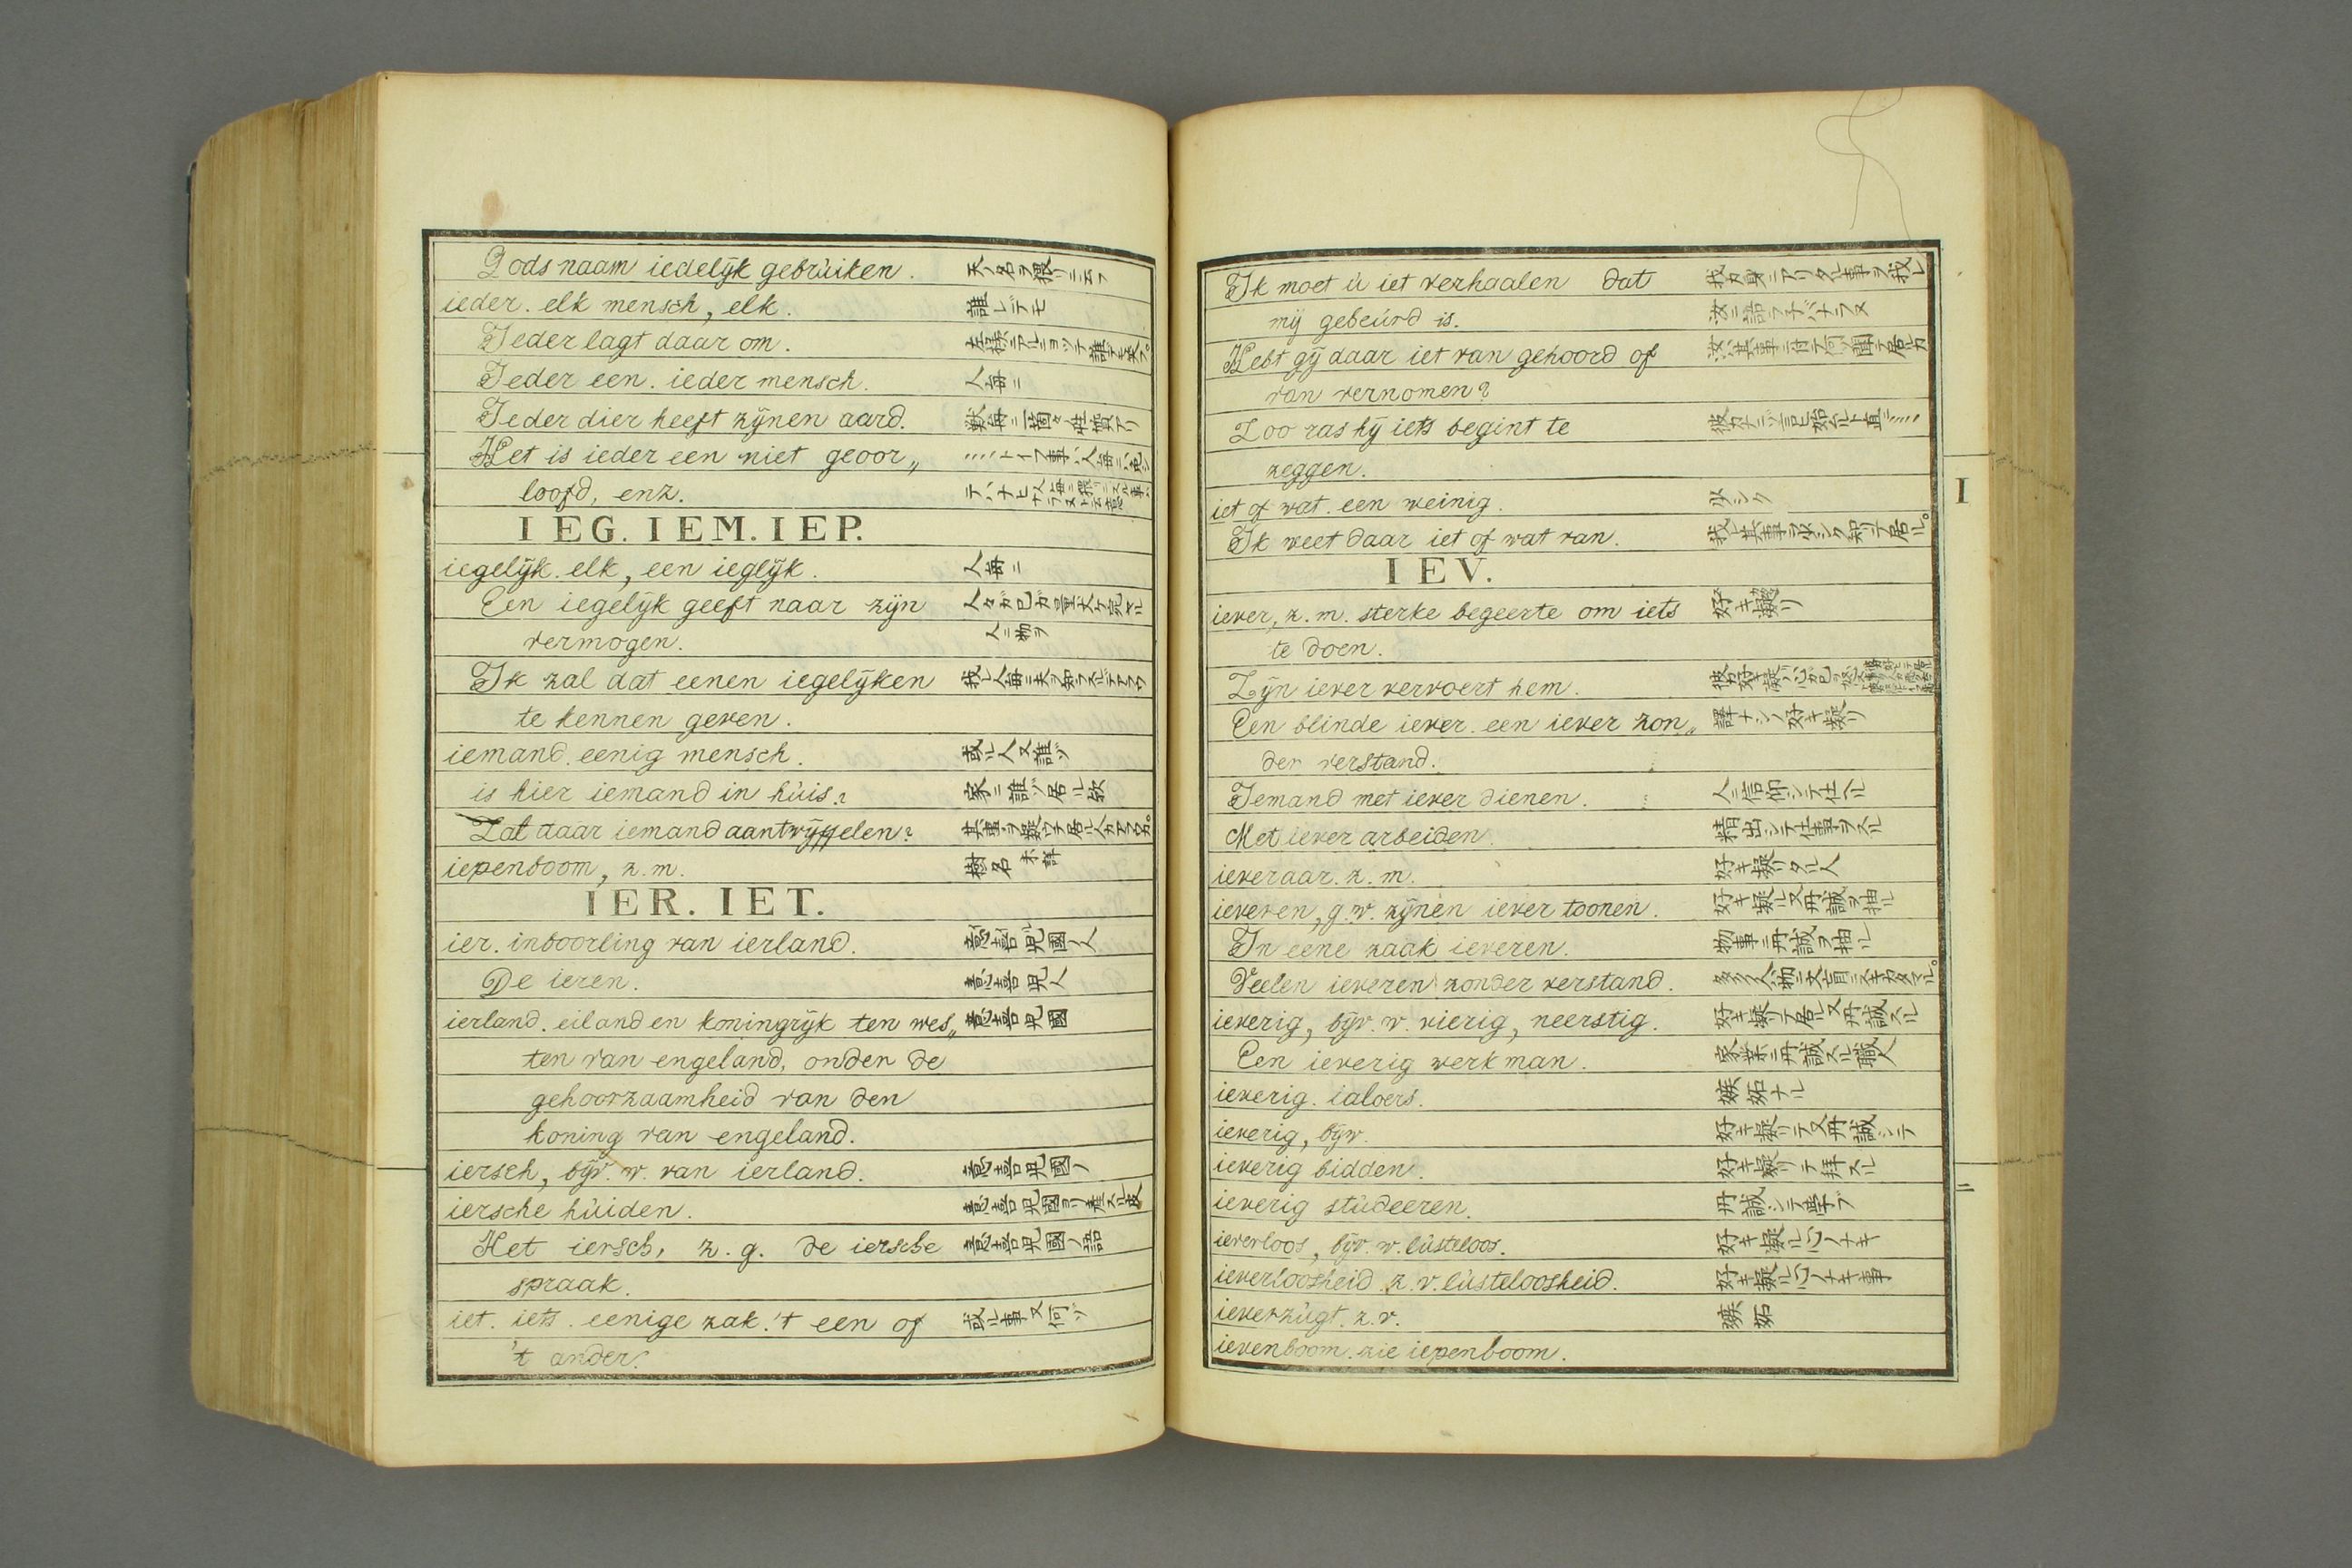 Gods naam iedelÿk gebrùiken. 天ノ名ヲ猥リニ云フ
ieder. elk mensch, elk. 誰レデモ
Ieder lagt daar om. 左様デアルニヨッテ誰デモ笑フ。
Ieder een. ieder mensch. 人毎ニ
Ieder dier heeft zÿnen aard. 獣毎ニ一箇々性質アリ
Het is ieder een niet geoor„
loofd, enz.
IEG. IEM. IEP.
iegelÿk. elk, een ieglÿk. 人毎ニ
Een iegelÿk geeft naar zÿn
vermogen. 人ニ物ヲ
Ik zal dat eenen iegelÿken
te kennen geven.
iemand. eenig mensch. 或ル人又誰ゾ
is hier iemand in hùis? 家ニ誰ゾ居ル欤
Zal daar iemand aantwÿffelen?
iepenboom, z. m. 樹名 未詳
IER. IET.
ier. inboorling van ierland. 意喜児國ノ人
De ieren. 意喜児人
ierland. eiland en koningrÿk ten wes„ 意喜児國
ten van engeland, onder de
gehoorzaamheid van den
koning van engeland.
iersch, bÿv. w. van ierland. 意喜児國ノ
iersche hùiden. 意喜児國ヨリ産スル皮
Het iersch, z. g. de iersche 意喜児國ノ語
spraak.
iet. iets. eenige zak. 't een of 或ル事又何ゾ
't ander.
Ik moet ù iet verhaalen dat 我カ身ニアリタル事ヲ我レ
mÿ gebeùrd is. 汝ニ語ラ子バナラヌ
Hebt gÿ daar iet van gehoord of 汝ハ其事ニ付テ何ゾ聞テ居ルカ
van vernomen?
Zoo ras hÿ iets begint te
zeggen.
iet of wat. een weinig. 少シク
Ik weet daar iet of wat van. 我レ其事ヲ少シク知テ居ル。
I
IEV.
iever, z. m. sterke begeerte om iets 好キ凝リ
te doen.
Zÿn iever vervoert hem.
Een blinde iever. een iever zon„ 譯ナシノ好キ凝リ
der verstand.
Iemand met iever dienen. 人ニ信仰シテ仕ヘル
Met iever arbeiden. 精出シテ仕事ヲスル
ieveraar. z. m. 好キ凝リタル人
ieveren, g. w. zÿnen iever toonen. 好キ凝ル又丹誠ヲ抽ル
In eene zaak ieveren. 物事ニ丹誠ヲ抽ル
Veelen ieveren zonder verstand.
ieverig, bÿv. w. vierig, neerstig. 好キ凝リテ居ル又丹誠スル
Een ieverig werkman. 家業ニ丹誠スル職人
ieverig. ialoers. 嫉妬ナル
ieverig, bÿw. 好キ凝リテ又丹誠シテ
ieverig bidden. 好キ凝リテ拝スル
ieverig stùdeeren. 丹誠シテ学ブ
ieverloos, bÿv. w. lùsteloos. 好キ凝ル心ノナキ
ieverloosheid z. v. lùsteloosheid. 好キ凝ル心ノナキ事
ieverzùgt. z. v. 嫉妬
ievenboom. zie iepenboom.